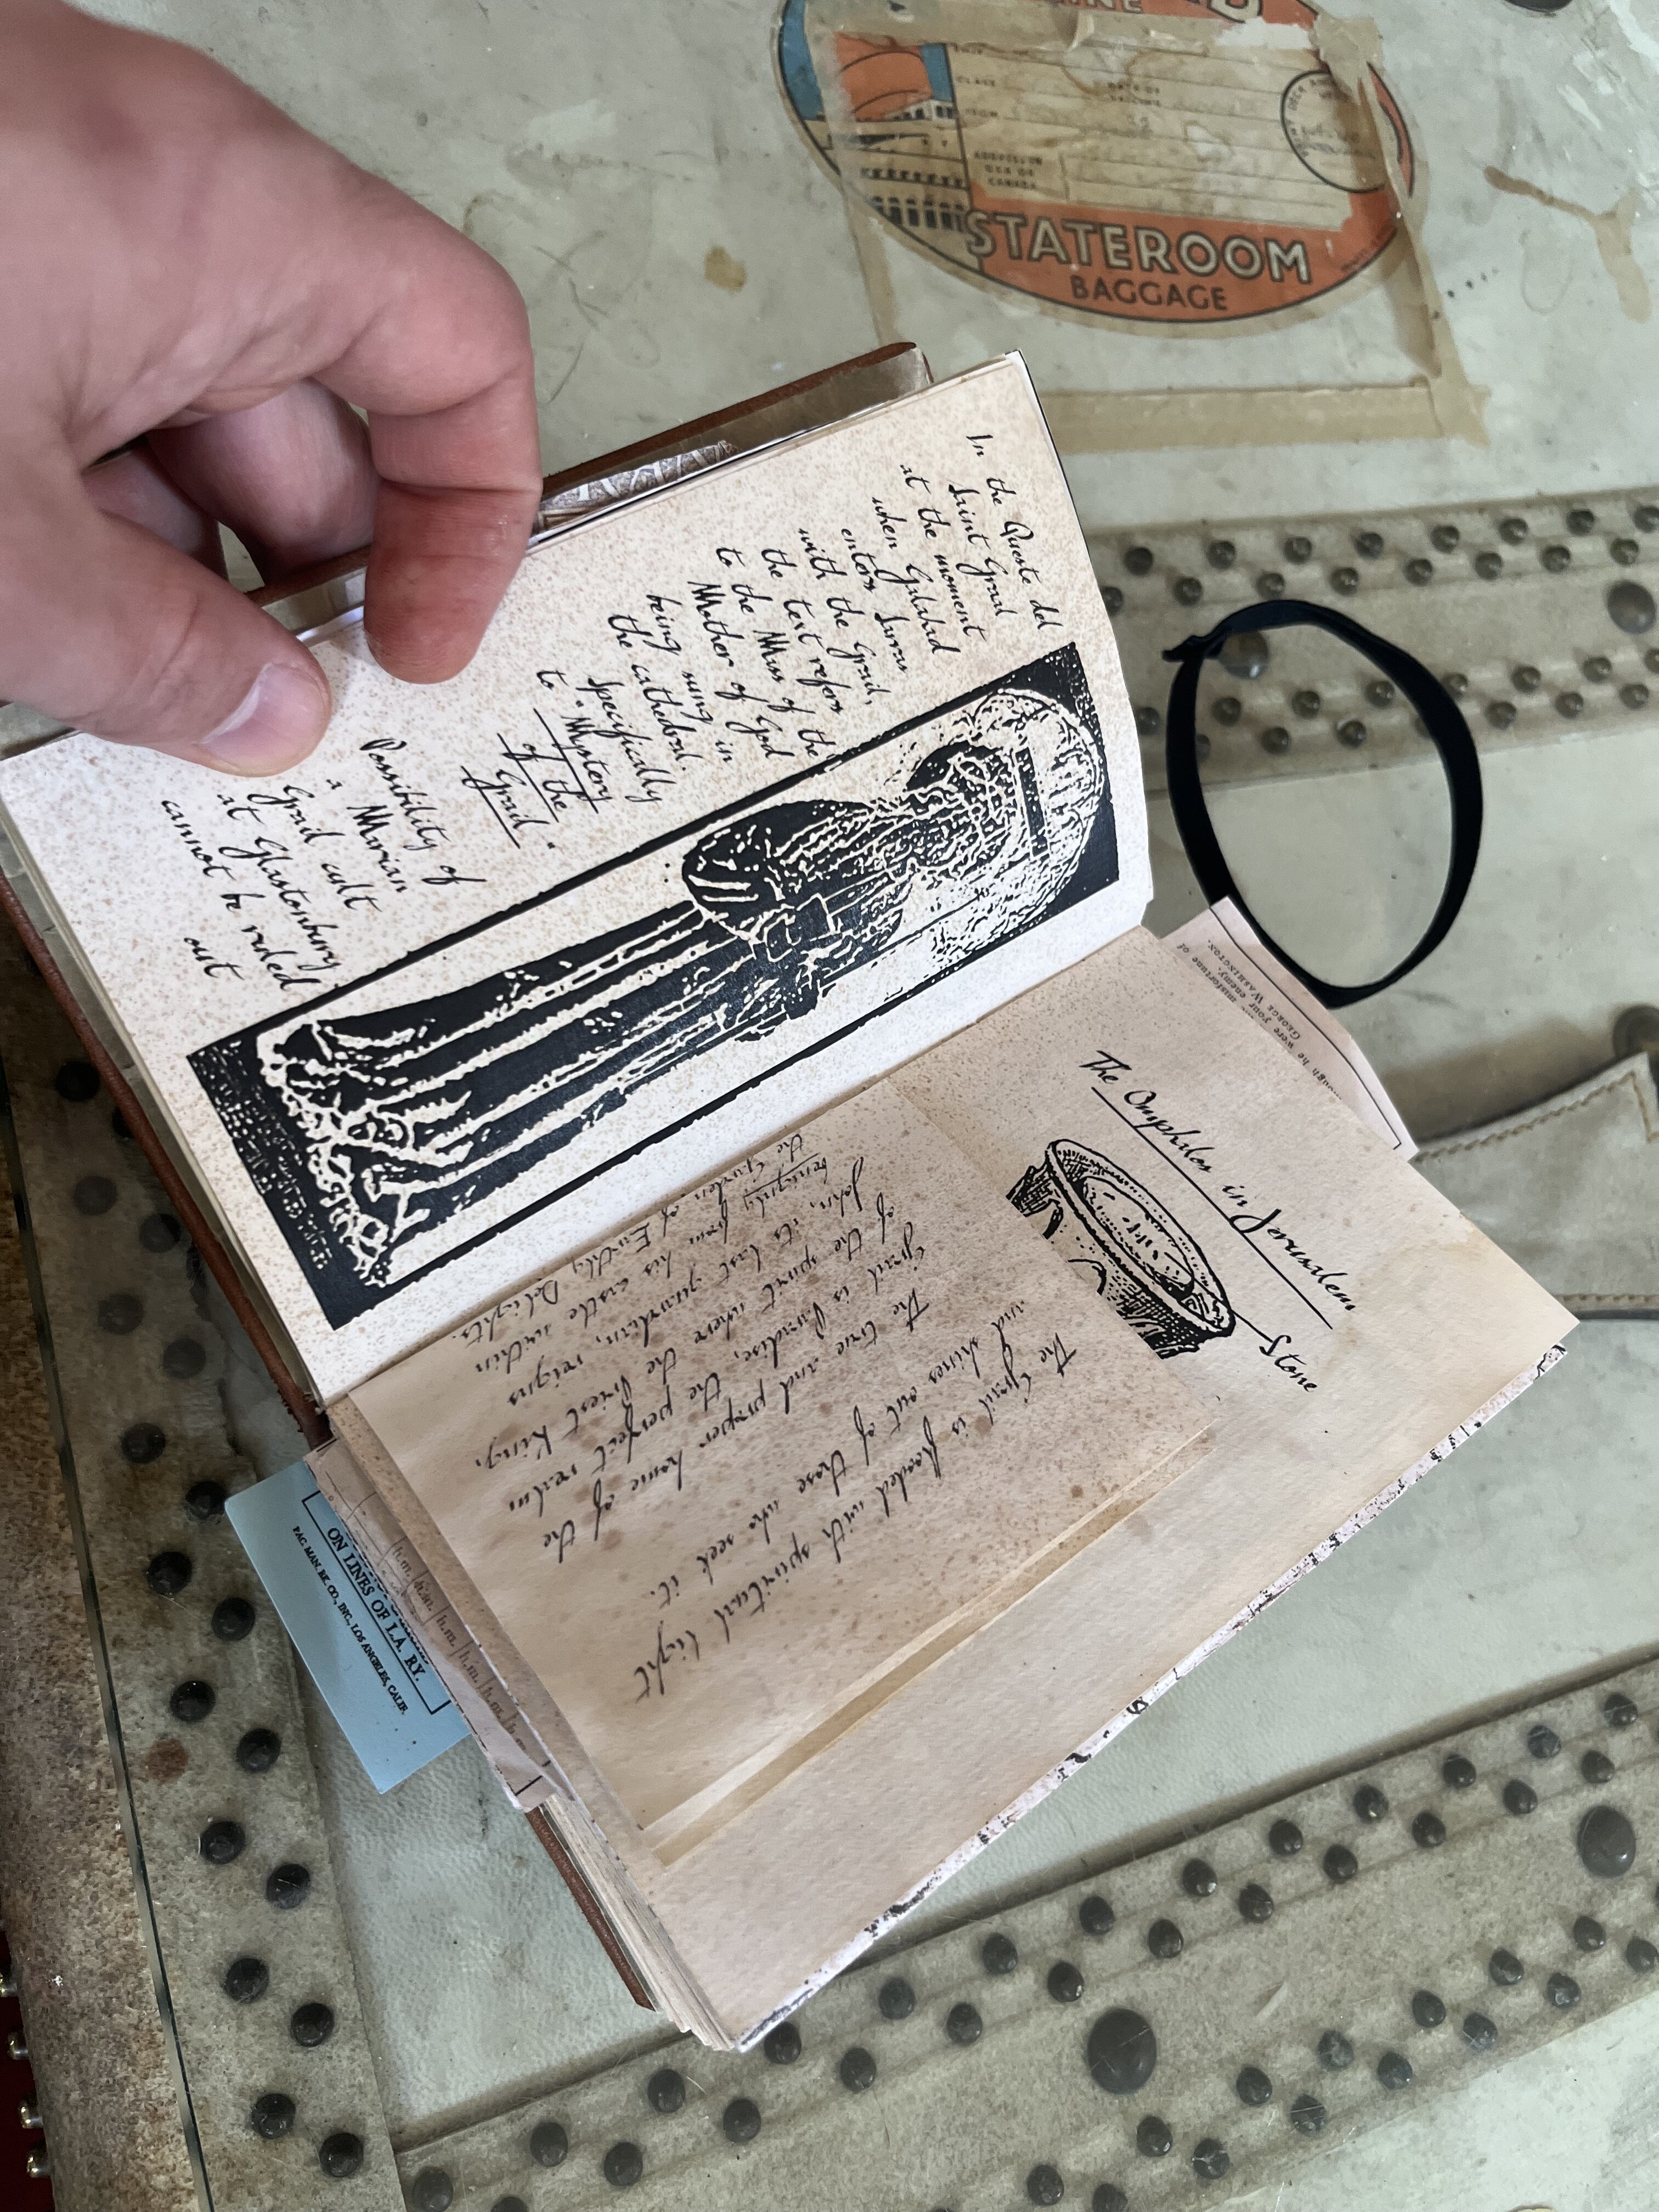 STATEROOM
BAGGAGE
In the Queste del
Saint Graal
at the moment
when Galahad
enters Sarras
with the Grail,
the text refers
to the Mass of the
Mother of God
being sung in
the cathedral.
Specifically
to "Mystery
of the
Grail".
Possibility of
a Marian
Grail cult
at Glastonbury
cannot be ruled
out
were your enemy.
misfortune of
GEORGE WASHINGTON.
The Omphalos in Jerusalem
Stone
The Grail is flooded with spiritual light
and shines out of those who seek it.
The true and proper home of the
Grail is Paradise,
of the spirit where the Priest King,
John, its last guardian, reigns
benignly from his castle within
the Garden of Earthly Delights.
the perfect realm
h.m. h.m. h.m. h.m. h.m.
ON LINES OF L.A. RY.
PAC. MAN. BK. CO., INC., LOS ANGELES, CALIF.